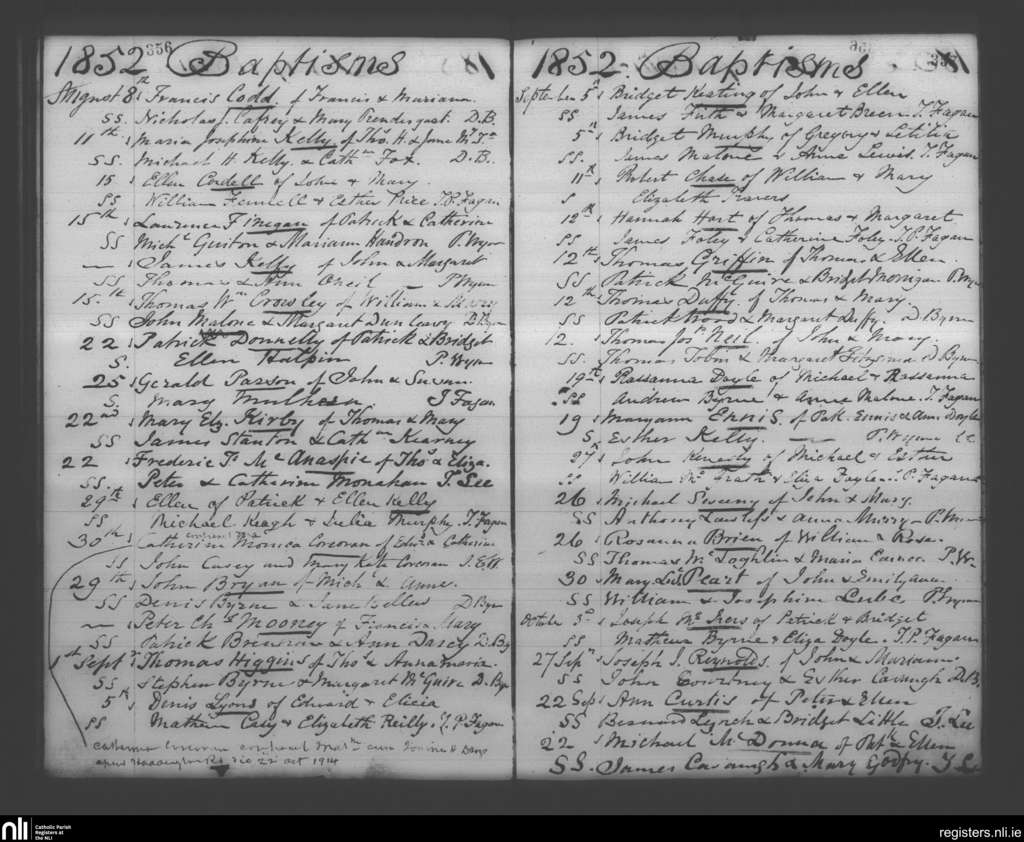 1852 356 Baptisms
August 8th Francis Codd of Francis & Mariann
SS. Nicholas J. Cafrey & Mary Prendergast D.B.
11th Maria Josephine Kelly of Thos. H. & Jane
SS. Michael H. Kelly & Cathn Fox D.B.
15 Ellen Cordell of John & Mary
SS William Fennell & Esther Price T.P. Fagan
15th Laurence Finegan of Patrick & Catherine
SS Michl Guiton & Mariann Handron P. Wynn
— James Kelly of John & Margaret
SS Thomas & Ann Oneil — P Wynn
15th Thomas Wm Crosley of William & Mary
SS John Malone & Margaret Dunleavy D Byrn
22 Patrick Donnelly of Patrick & Bridget
S. Ellen Halpin P. Wynn
25 Gerald Parson of John & Susan
S. Mary Mulhern J Fagan
22nd Mary Elz. Kirby of Thomas & Mary
SS James Stanton & Cathn Kearney
22 Frederic F. Mc Anaspie of Thos & Eliza.
SS. Peter & Catherine Monahan T. Lee
29th Ellen of Patrick & Ellen Kelly
SS Michael Keagh & Julia Murphy. T. Fagan
30th Catherine Monica Corcoran of Edwd & Catherine
SS John Casey and Mary Kate Corcoran
29th John Bryan of Michl & Anne.
SS Denis Byrne & Jane Bellew D Byrn
— Peter Chs Mooney of Francis & Mary
SS Patrick Brennan & Ann Darcy D. By
1st Septr Thomas Higgins of Thos & Annamaria.
SS Stephen Byrne & Margaret McGuire D. Byr
5th Denis Lyons of Edward & Elicia
SS Mathew Casey & Elizabeth Reilly. T. P. Fagan
Catherine Corcoran
die 22 oct 1914
1852 Baptisms
September 5th Bridget Keating of John & Ellen
SS James Furth & Margaret Breen T. Fagan
5th Bridget Murphy of Gregory & Letitia
SS. James Malone & Anne Lewis. T. Fagan
11th Robert Chase of William & Mary
S Elizabeth Travers
12th Hannah Hart of Thomas & Margaret
SS James Foley & Catherine Foley. T. P. Fagan
12th Thomas Griffin of Thomas & Ellen.
SS Patrick McGuire & Bridget Monigan P. Wyn
12th Thomas Duffy of Thomas & Mary.
SS Patrick Ward & Margaret Duffy. D Byrn
12. Thomas Jos. Neil of John & Mary.
SS. Thomas Tobin & Margaret D Byrn
19th Rassanna Doyle of Michael & Rassanna
SS Andrew Byrne & Anne Malone. T. Fagan
19 Maryann Ennis of Pat. Ennis & Ann Doyle
S. Esther Kelly. — P. Wynne CC
27 John Kenesly of Michael & Esther
SS William McGrath & Eliza Fayle. T. P. Fagan
26 Michael Sweeny of John & Mary
SS Anthony & Anna Murry P. Wynn
26 Rosanna Brien of William & Rose.
SS Thomas McLoghlin & Maria Cannon P.W.
30 Mary Liz. Peart of John & Emilyann
SS William & Josephine Leslie P. Wynn
October 3rd Joseph Mc of Patrick & Bridget
SS Mathew Byrne & Eliza Doyle. T. P. Fagan
27 Sepr Joseph J. Reynolds of John & Mariann
SS John Courtney & Esther Cavanagh D. B.
22 Sep Ann Curtis of Peter & Ellen
SS Bernard Lynch & Bridget Little T. Lee
22 Michael McDonna of Patk & Ellen
SS. James Cavanagh & Mary Godfry. T L
nli Catholic Parish
Registers at
the NLI
registers.nli.ie